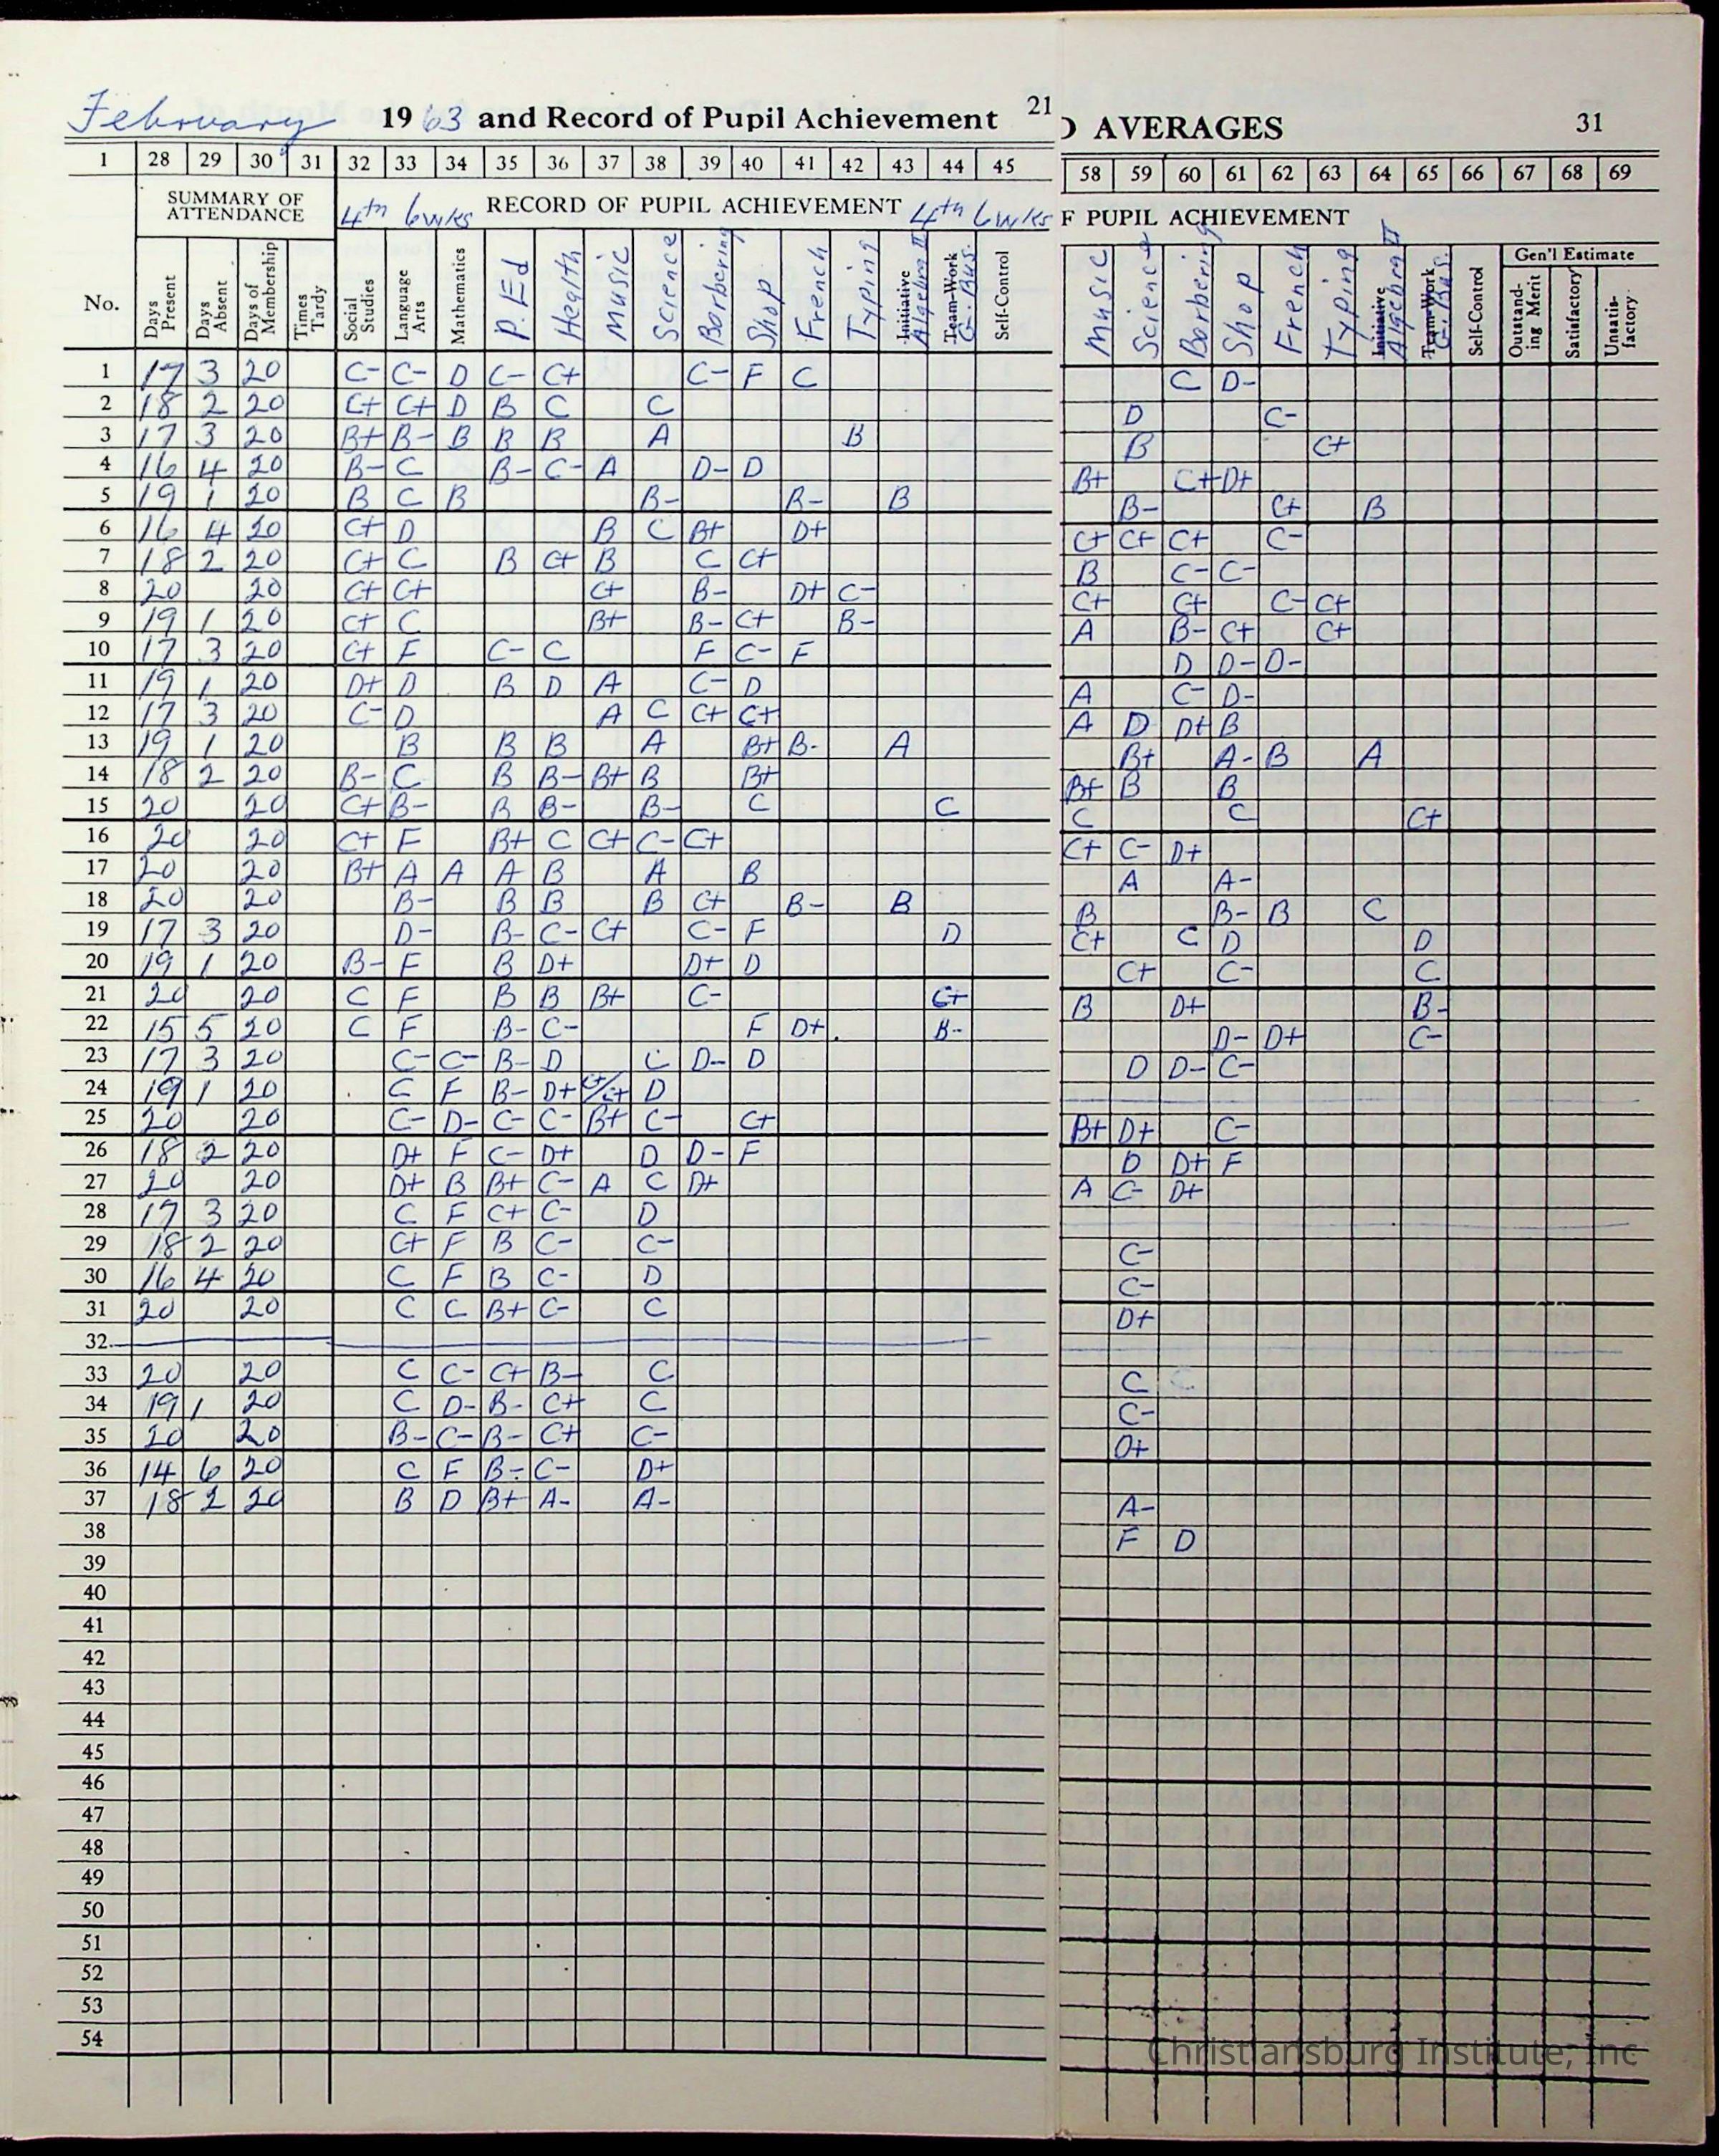 February 1963 and Record of Pupil Achievement 21
D AVERAGES 31
1 28 29 30 31 32 33 34 35 36 37 38 39 40 41 42 43 44 45
58 59 60 61 62 63 64 65 66 67 68 69
SUMMARY OF ATTENDANCE
4th 6wks RECORD OF PUPIL ACHIEVEMENT 4th 6wks
F PUPIL ACHIEVEMENT
Gen'l Estimate
No. Days Present Days Absent Days of Membership Times Tardy Social Studies Language Arts Mathematics P. Ed Health Music Science Barbering Shop French Typing Initiative Algebra II Team-Work G. Bus. Self-Control
Music Science Barbering Shop French Typing Initiative Algebra II Team-Work G. Bus. Self-Control Outstanding Merit Satisfactory Unsatisfactory
1 17 3 20 C- C- D C- C+ C- F C C D-
2 18 2 20 C+ C+ D B C C D C-
3 17 3 20 B+ B- B B B A B B C+
4 16 4 20 B- C B- C- A D- D B+ C+ D+
5 19 1 20 B C B B- B- B B- C+ B
6 16 4 20 C+ D B C B+ D+ C+ C+ C+ C-
7 18 2 20 C+ C B C+ B C C+ B C- C-
8 20 20 C+ C+ C+ B- D+ C- C+ C+ C- C+
9 19 1 20 C+ C B+ B- C+ B- A B- C+ C+
10 17 3 20 C+ F C- C F C- F D D- D-
11 19 1 20 D+ D B D A C- D A C- D-
12 17 3 20 C- D A C C+ C+ A D D+ B
13 19 1 20 B B B A B+ B- A B+ A- B A
14 18 2 20 B- C B B- B+ B B+ B+ B B
15 20 20 C+ B- B B- B- C C C C C+
16 20 20 C+ F B+ C C+ C- C+ C+ C- D+
17 20 20 B+ A A A B A B A A-
18 20 20 B- B B B C+ B- B B B- B C
19 17 3 20 D- B- C- C+ C- F D C+ C D D
20 19 1 20 B- F B D+ D+ D C+ C- C
21 20 20 C F B B B+ C- C+ B D+ B-
22 15 5 20 C F B- C- F D+ B- D- D+ C-
23 17 3 20 C- C- B- D C D- D D D- C-
24 19 1 20 C F B- D+ C+/C+ D
25 20 20 C- D- C- C- B+ C- C+ B+ D+ C-
26 18 2 20 D+ F C- D+ D D- F D D+ F
27 20 20 D+ B B+ C- A C D+ A C- D+
28 17 3 20 C F C+ C- D
29 18 2 20 C+ F B C- C- C-
30 16 4 20 C F B C- D C-
31 20 20 C C B+ C- C D+
32
33 20 20 C C- C+ B- C C
34 19 1 20 C D- B- C+ C C-
35 20 20 B- C- B- C+ C- D+
36 14 6 20 C F B- C- D+
37 18 2 20 B D B+ A- A- A-
38 F D
39
40
41
42
43
44
45
46
47
48
49
50
51
52
53
54
Christiansburg Institute, Inc